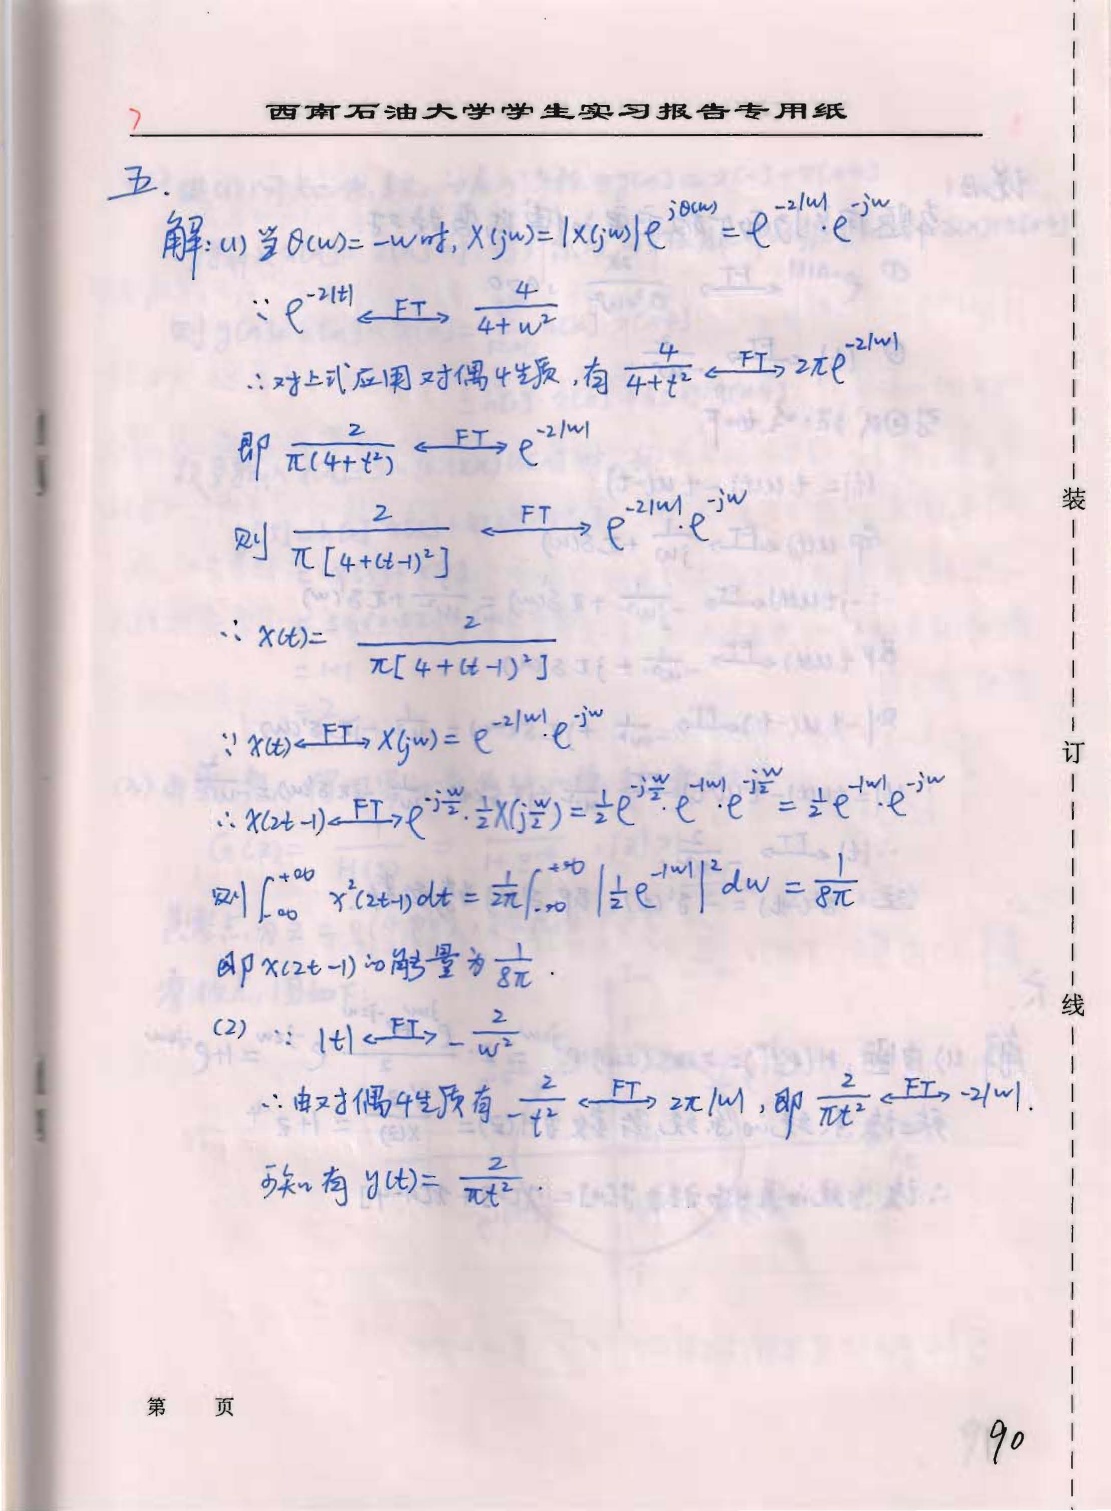 7
西南石油大学学生实习报告专用纸
五.
解:(1) 当θ(w)=-w时, X(jw)=|X(jw)|e^{jθ(w)}=e^{-2|w|}·e^{-jw}
∵ e^{-2|t|} ←FT→ 4/(4+w²)
∴对上式应用对偶性质,有 4/(4+t²) ←FT→ 2πe^{-2|w|}
即 2/(π(4+t²)) ←FT→ e^{-2|w|}
则 2/(π[4+(t-1)²]) ←FT→ e^{-2|w|}·e^{-jw}
∴ x(t)= 2/(π[4+(t-1)²])
∵ x(t) ←FT→ X(jw)= e^{-2|w|}·e^{-jw}
∴ x(2t-1) ←FT→ e^{-jw/2}·½X(jw/2)=½e^{-jw/2}·e^{-|w|}·e^{-jw/2}=½e^{-|w|}·e^{-jw}
则 ∫_{-∞}^{+∞} x²(2t-1)dt = 1/2π ∫_{-∞}^{+∞} |½e^{-|w|}|² dw = 1/8π
即 x(2t-1)的能量为 1/8π .
(2) ∵ |t| ←FT→ -2/w²
∴由对偶性质有 -2/t² ←FT→ 2π|w|, 即 2/πt² ←FT→ -2|w|.
可知有 y(t)= 2/πt² .
第 页
90
装
订
线